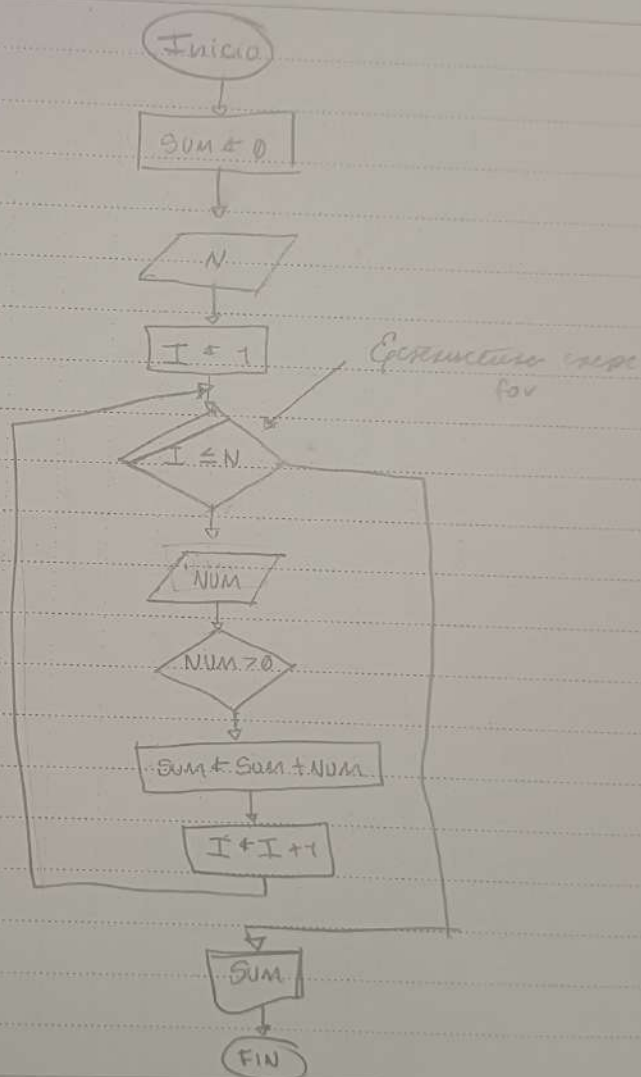 Inicio
SUM ← 0
N
I ← 1
for
I ≤ N
NUM
NUM > 0
SUM ← SUM + NUM
I ← I + 1
SUM
FIN